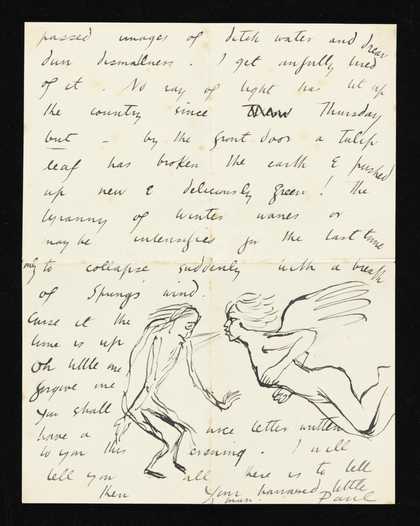 passed images of ditch water and drear
dun dismallness. I get awfully tired
of it. No ray of light has lit up
the country since Thursday
but — by the front door a tulip
leaf has broken the earth & pushed
up new & deliciously green! The
tyranny of Winter wanes or
may be intensifies for the last time
only to collapse suddenly with a breath
of Spring's wind.
Curse it the
time is up
Oh little me
forgive me
You shall
have a nice letter written
to you this evening. I will
tell you all there is to tell
then Your harrassed little
man. Paul